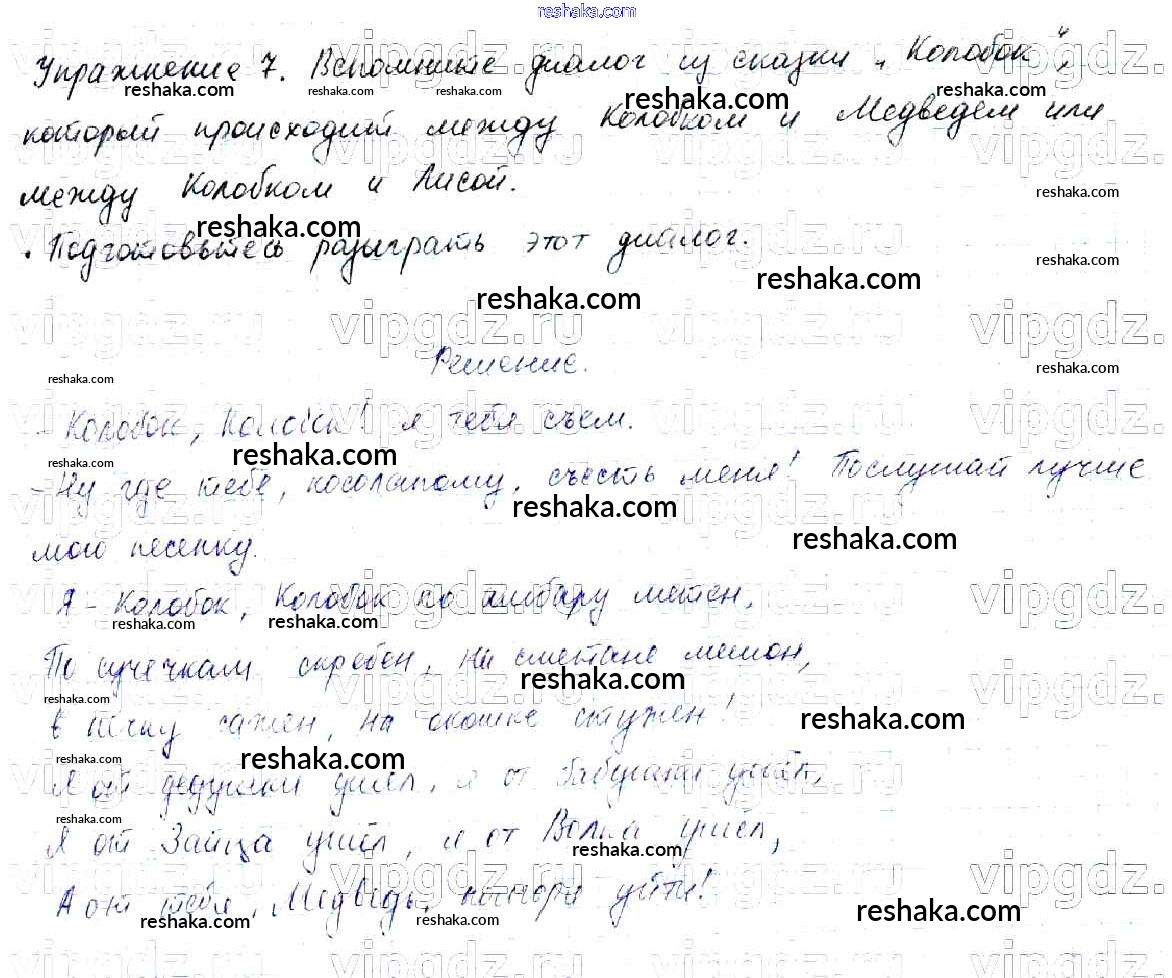 reshaka.com
Упражнение 7. Вспомните диалог из сказки „Колобок",
который происходит между Колобком и Медведем или
между Колобком и Лисой.
• Подготовьтесь разыграть этот диалог.
Решение.
- Колобок, Колобок! я тебя съем.
- Ну где тебе, косолапому, съесть меня! Послушай лучше
мою песенку.
Я - Колобок, Колобок по амбару метен,
По сусечкам скребен, на сметане мешон,
в печку сажен, на окошке стужен!
Я от дедушки ушёл, я от бабушки ушёл,
Я от Зайца ушёл, я от Волка ушёл,
А от тебя, Медведь, уйти!